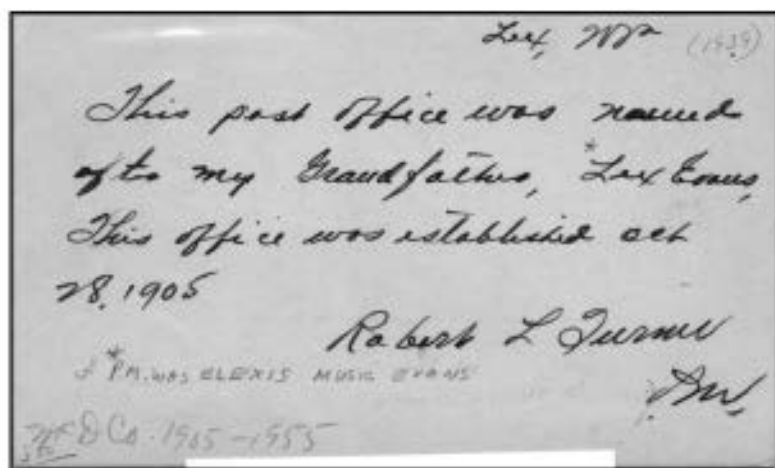 Lex, WVa (1939)
This post office was named
after my Grandfather, *Lex Evans,
This office was established Oct
28, 1905
Robert L Turner
P.M.
* P.M. WAS ELEXIS MUSIC EVANS
McD Co. 1905-1955